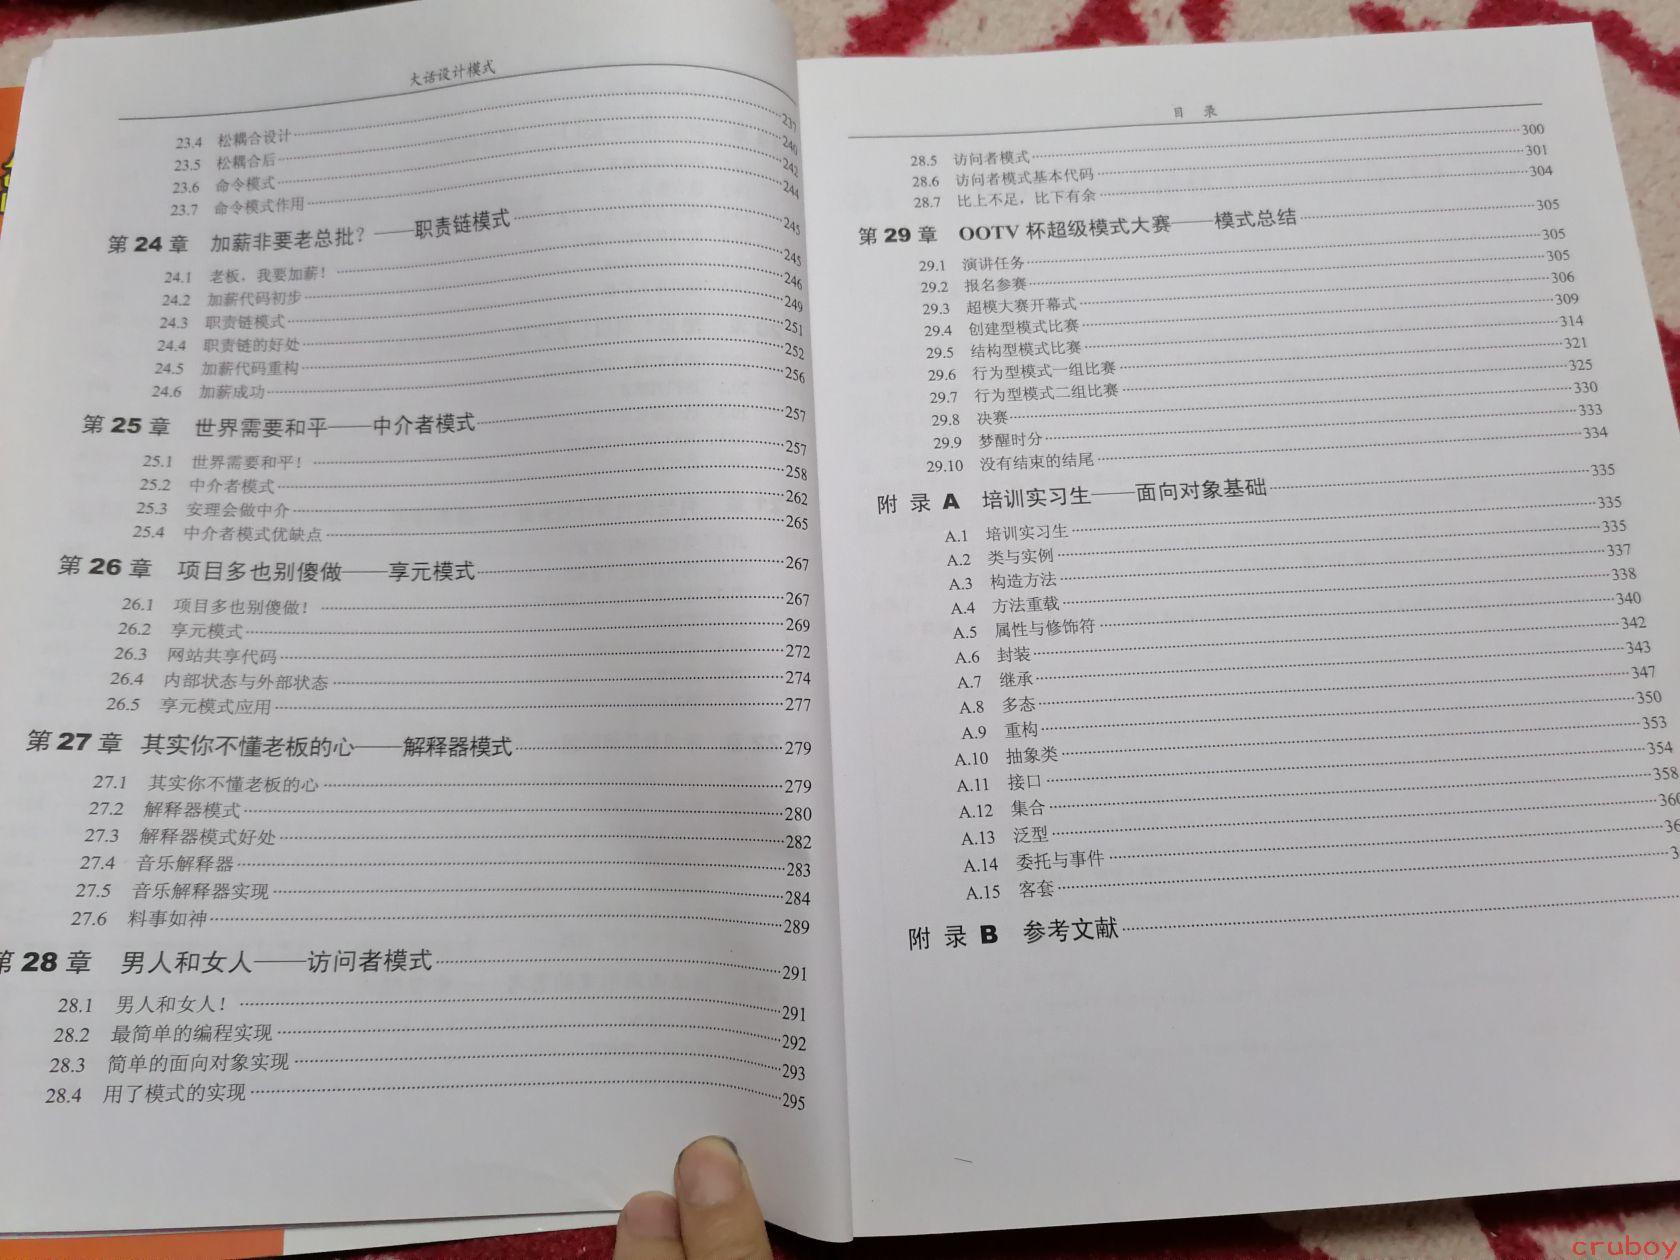 大话设计模式
23.4 松耦合设计 237
23.5 松耦合后 240
23.6 命令模式 242
23.7 命令模式作用 244
第 24 章 加薪非要老总批？——职责链模式 245
24.1 老板，我要加薪！ 245
24.2 加薪代码初步 246
24.3 职责链模式 249
24.4 职责链的好处 251
24.5 加薪代码重构 252
24.6 加薪成功 256
第 25 章 世界需要和平——中介者模式 257
25.1 世界需要和平！ 257
25.2 中介者模式 258
25.3 安理会做中介 262
25.4 中介者模式优缺点 265
第 26 章 项目多也别傻做——享元模式 267
26.1 项目多也别傻做！ 267
26.2 享元模式 269
26.3 网站共享代码 272
26.4 内部状态与外部状态 274
26.5 享元模式应用 277
第 27 章 其实你不懂老板的心——解释器模式 279
27.1 其实你不懂老板的心 279
27.2 解释器模式 280
27.3 解释器模式好处 282
27.4 音乐解释器 283
27.5 音乐解释器实现 284
27.6 料事如神 289
第 28 章 男人和女人——访问者模式 291
28.1 男人和女人！ 291
28.2 最简单的编程实现 292
28.3 简单的面向对象实现 293
28.4 用了模式的实现 295
目 录
28.5 访问者模式 300
28.6 访问者模式基本代码 301
28.7 比上不足，比下有余 304
第 29 章 OOTV 杯超级模式大赛——模式总结 305
29.1 演讲任务 305
29.2 报名参赛 305
29.3 超模大赛开幕式 306
29.4 创建型模式比赛 309
29.5 结构型模式比赛 314
29.6 行为型模式一组比赛 321
29.7 行为型模式二组比赛 325
29.8 决赛 330
29.9 梦醒时分 333
29.10 没有结束的结尾 334
附 录 A 培训实习生——面向对象基础 335
A.1 培训实习生 335
A.2 类与实例 335
A.3 构造方法 337
A.4 方法重载 338
A.5 属性与修饰符 340
A.6 封装 342
A.7 继承 343
A.8 多态 347
A.9 重构 350
A.10 抽象类 353
A.11 接口 354
A.12 集合 358
A.13 泛型 360
A.14 委托与事件
A.15 客套
附 录 B 参考文献
cruboy